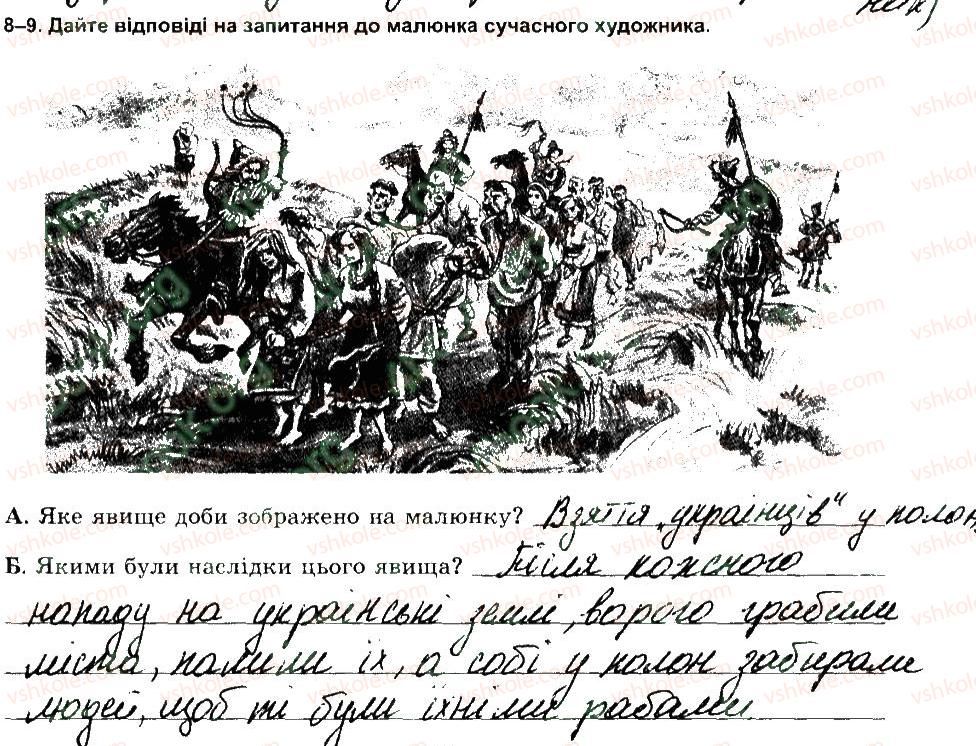 8–9. Дайте відповіді на запитання до малюнка сучасного художника.
А. Яке явище доби зображено на малюнку? Взяття „українців" у полон
Б. Якими були наслідки цього явища? Після кожного
нападу на українські землі, ворого грабили
міста, палили їх, а собі у полон забирали
людей, щоб ті були їхніми рабами.